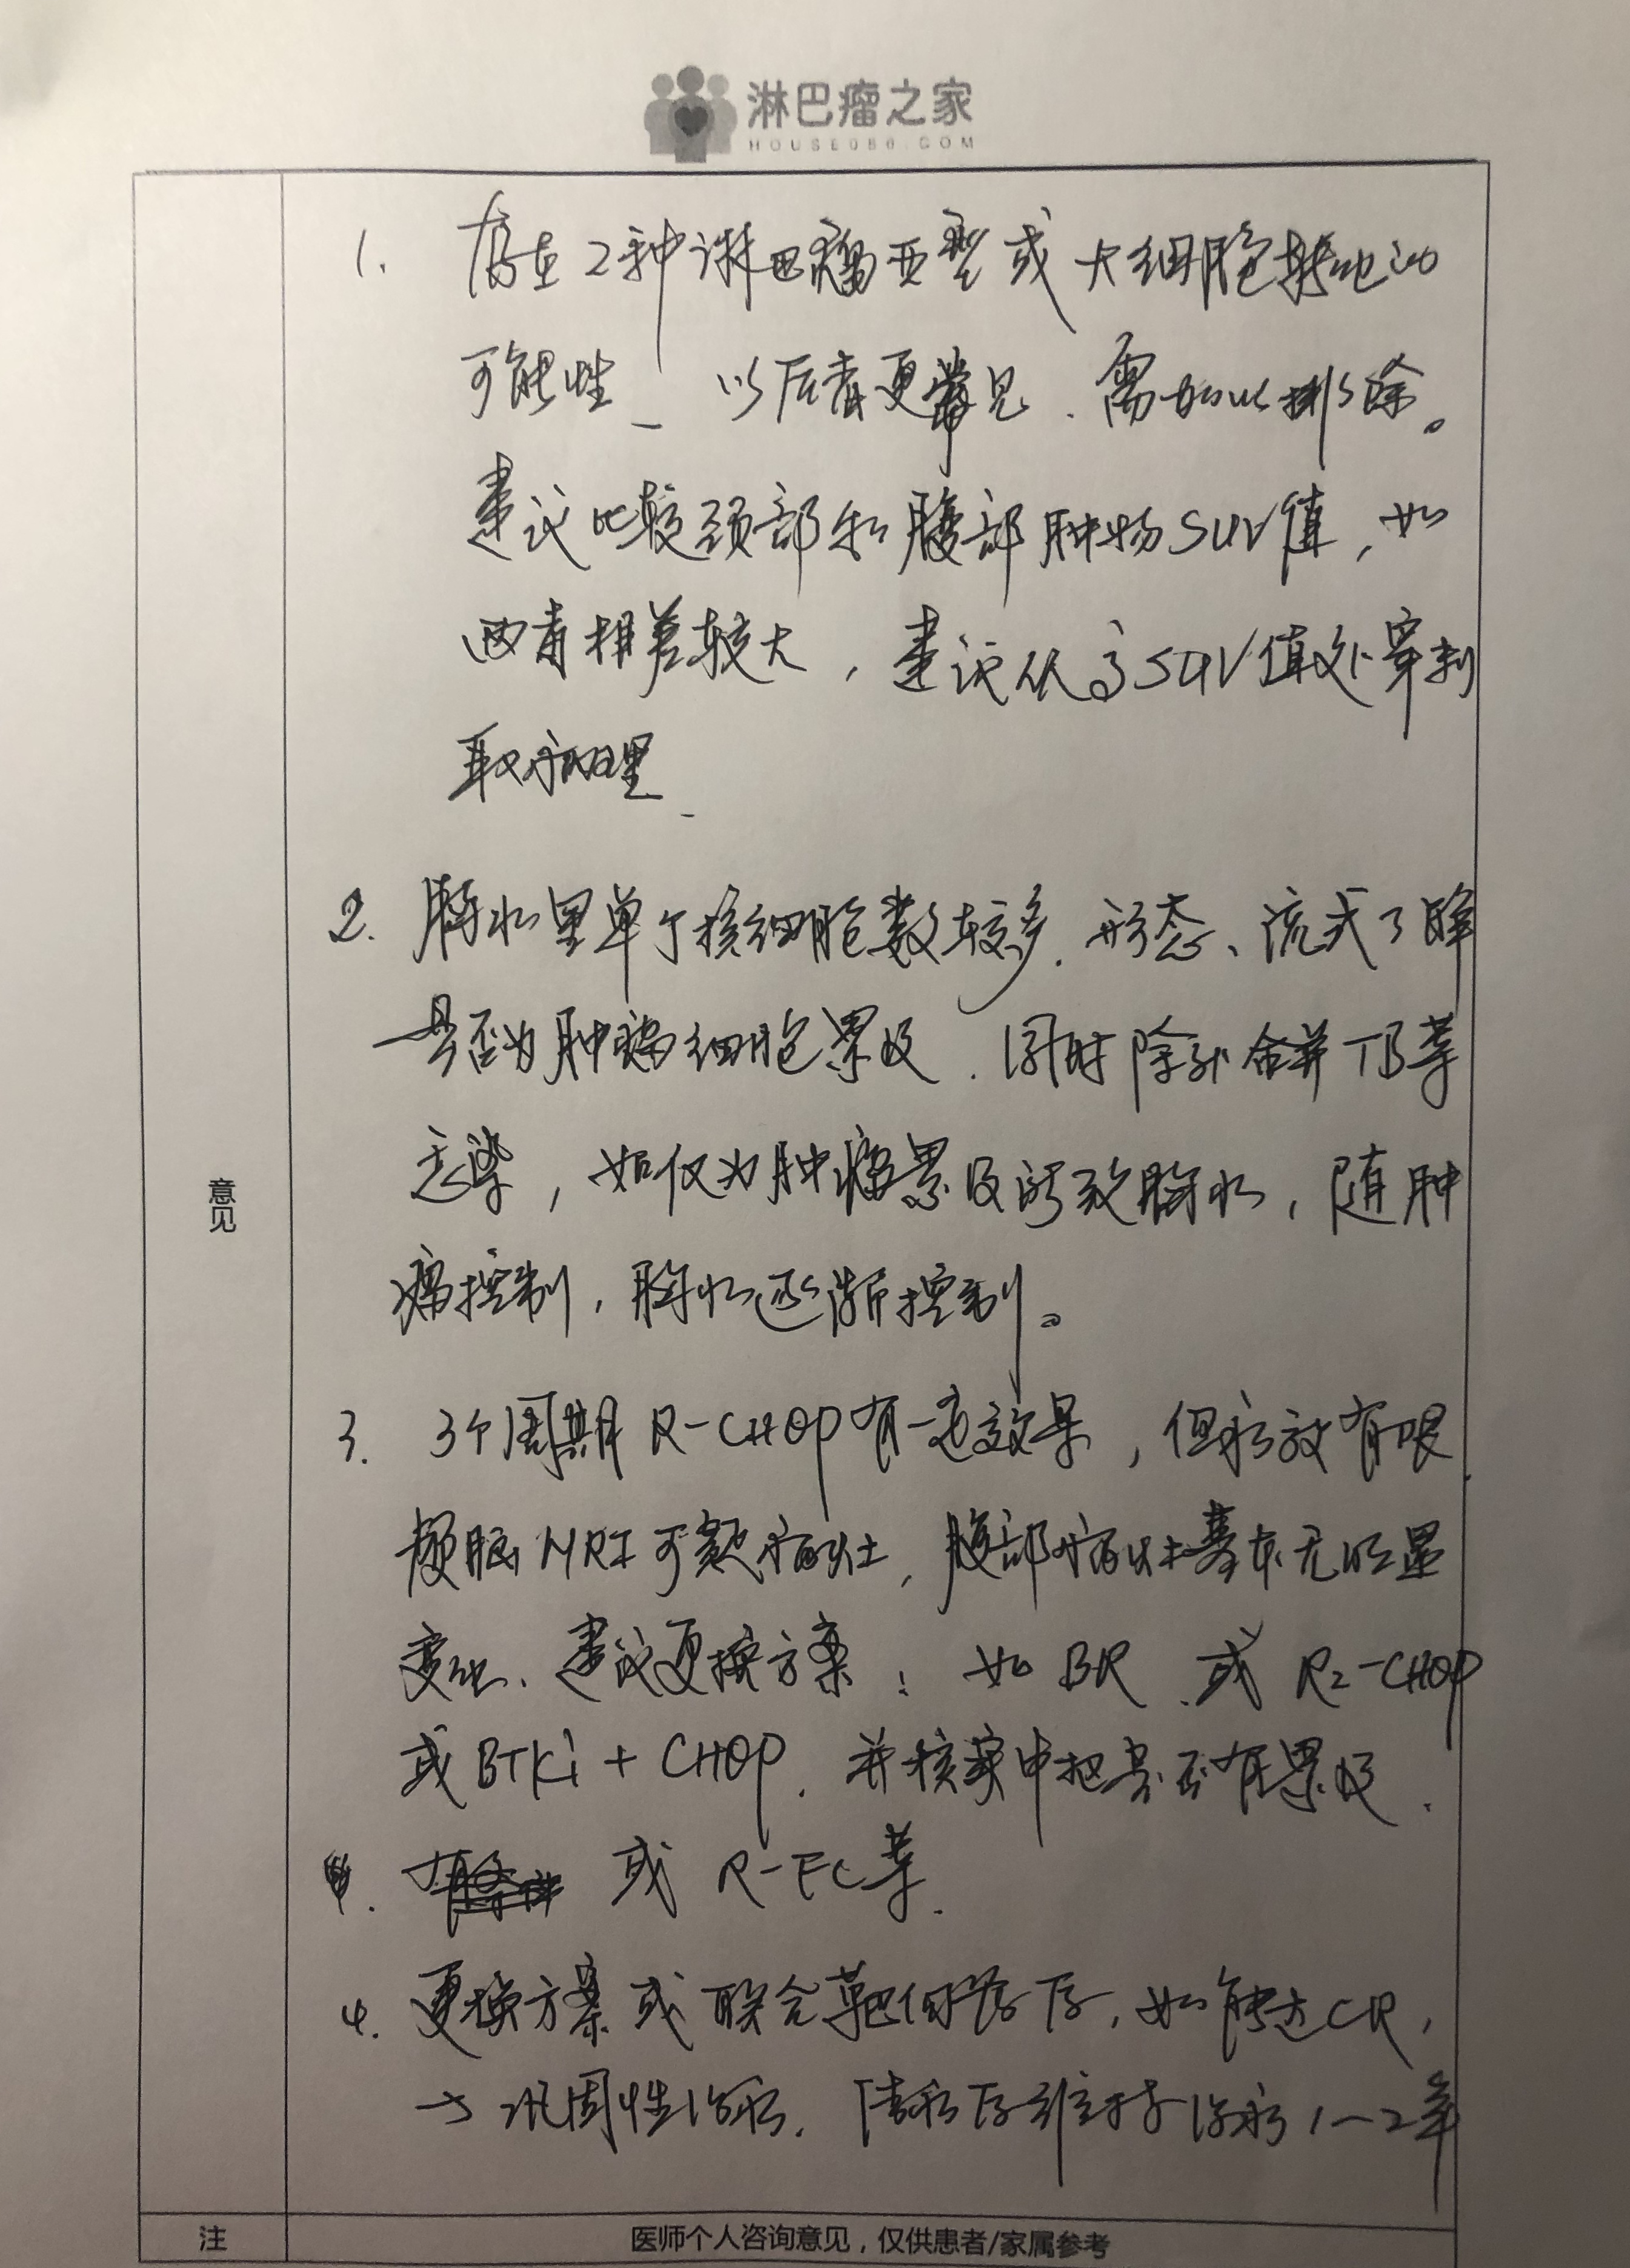 淋巴瘤之家
HOUSE086.COM
1. 存在2种淋巴瘤亚型或大细胞转化的
可能性、以后者更常见、需加以排除。
建议比较颈部和腹部肿物SUV值，如
两者相差较大，建议从高SUV值处穿刺
取病理、
2. 胸水里单个核细胞数较多、形态、流式了解
是否为肿瘤细胞累及、同时除外合并TB等
感染，如仅为肿瘤累及所致胸水，随肿
瘤控制，胸水逐渐控制。
3. 3个周期R-CHOP有一定效果，但疗效有限
颅脑MRI可疑病灶，腹部病灶基本无明显
变化、建议更换方案：如BR、或R2-CHOP
或BTKi+CHOP、并核实中枢是否有累及、
或R-FC等、
4. 更换方案或联合靶向药后，如能达CR，
→巩固性治疗、后维持治疗1-2年
意见
注
医师个人咨询意见，仅供患者/家属参考